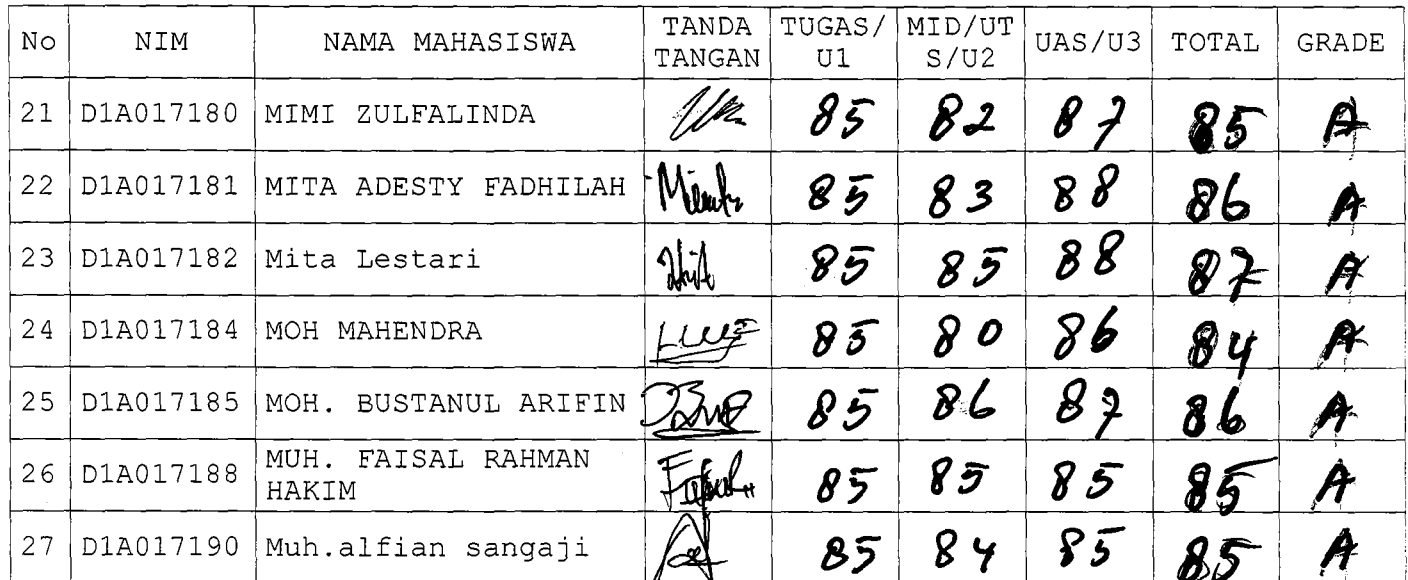 No NIM NAMA MAHASISWA TANDA TANGAN TUGAS/U1 MID/UTS/U2 UAS/U3 TOTAL GRADE
21 D1A017180 MIMI ZULFALINDA 85 82 87 85 A
22 D1A017181 MITA ADESTY FADHILAH 85 83 88 86 A
23 D1A017182 Mita Lestari 85 85 88 87 A
24 D1A017184 MOH MAHENDRA 85 80 86 84 A
25 D1A017185 MOH. BUSTANUL ARIFIN 85 86 87 86 A
26 D1A017188 MUH. FAISAL RAHMAN HAKIM 85 85 85 85 A
27 D1A017190 Muh.alfian sangaji 85 84 85 85 A